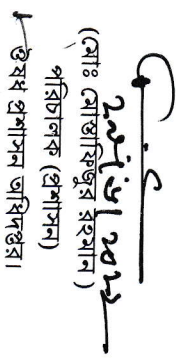 (মোঃ মোস্তাফিজুর রহমান)
পরিচালক (প্রশাসন)
ঔষধ প্রশাসন অধিদপ্তর।